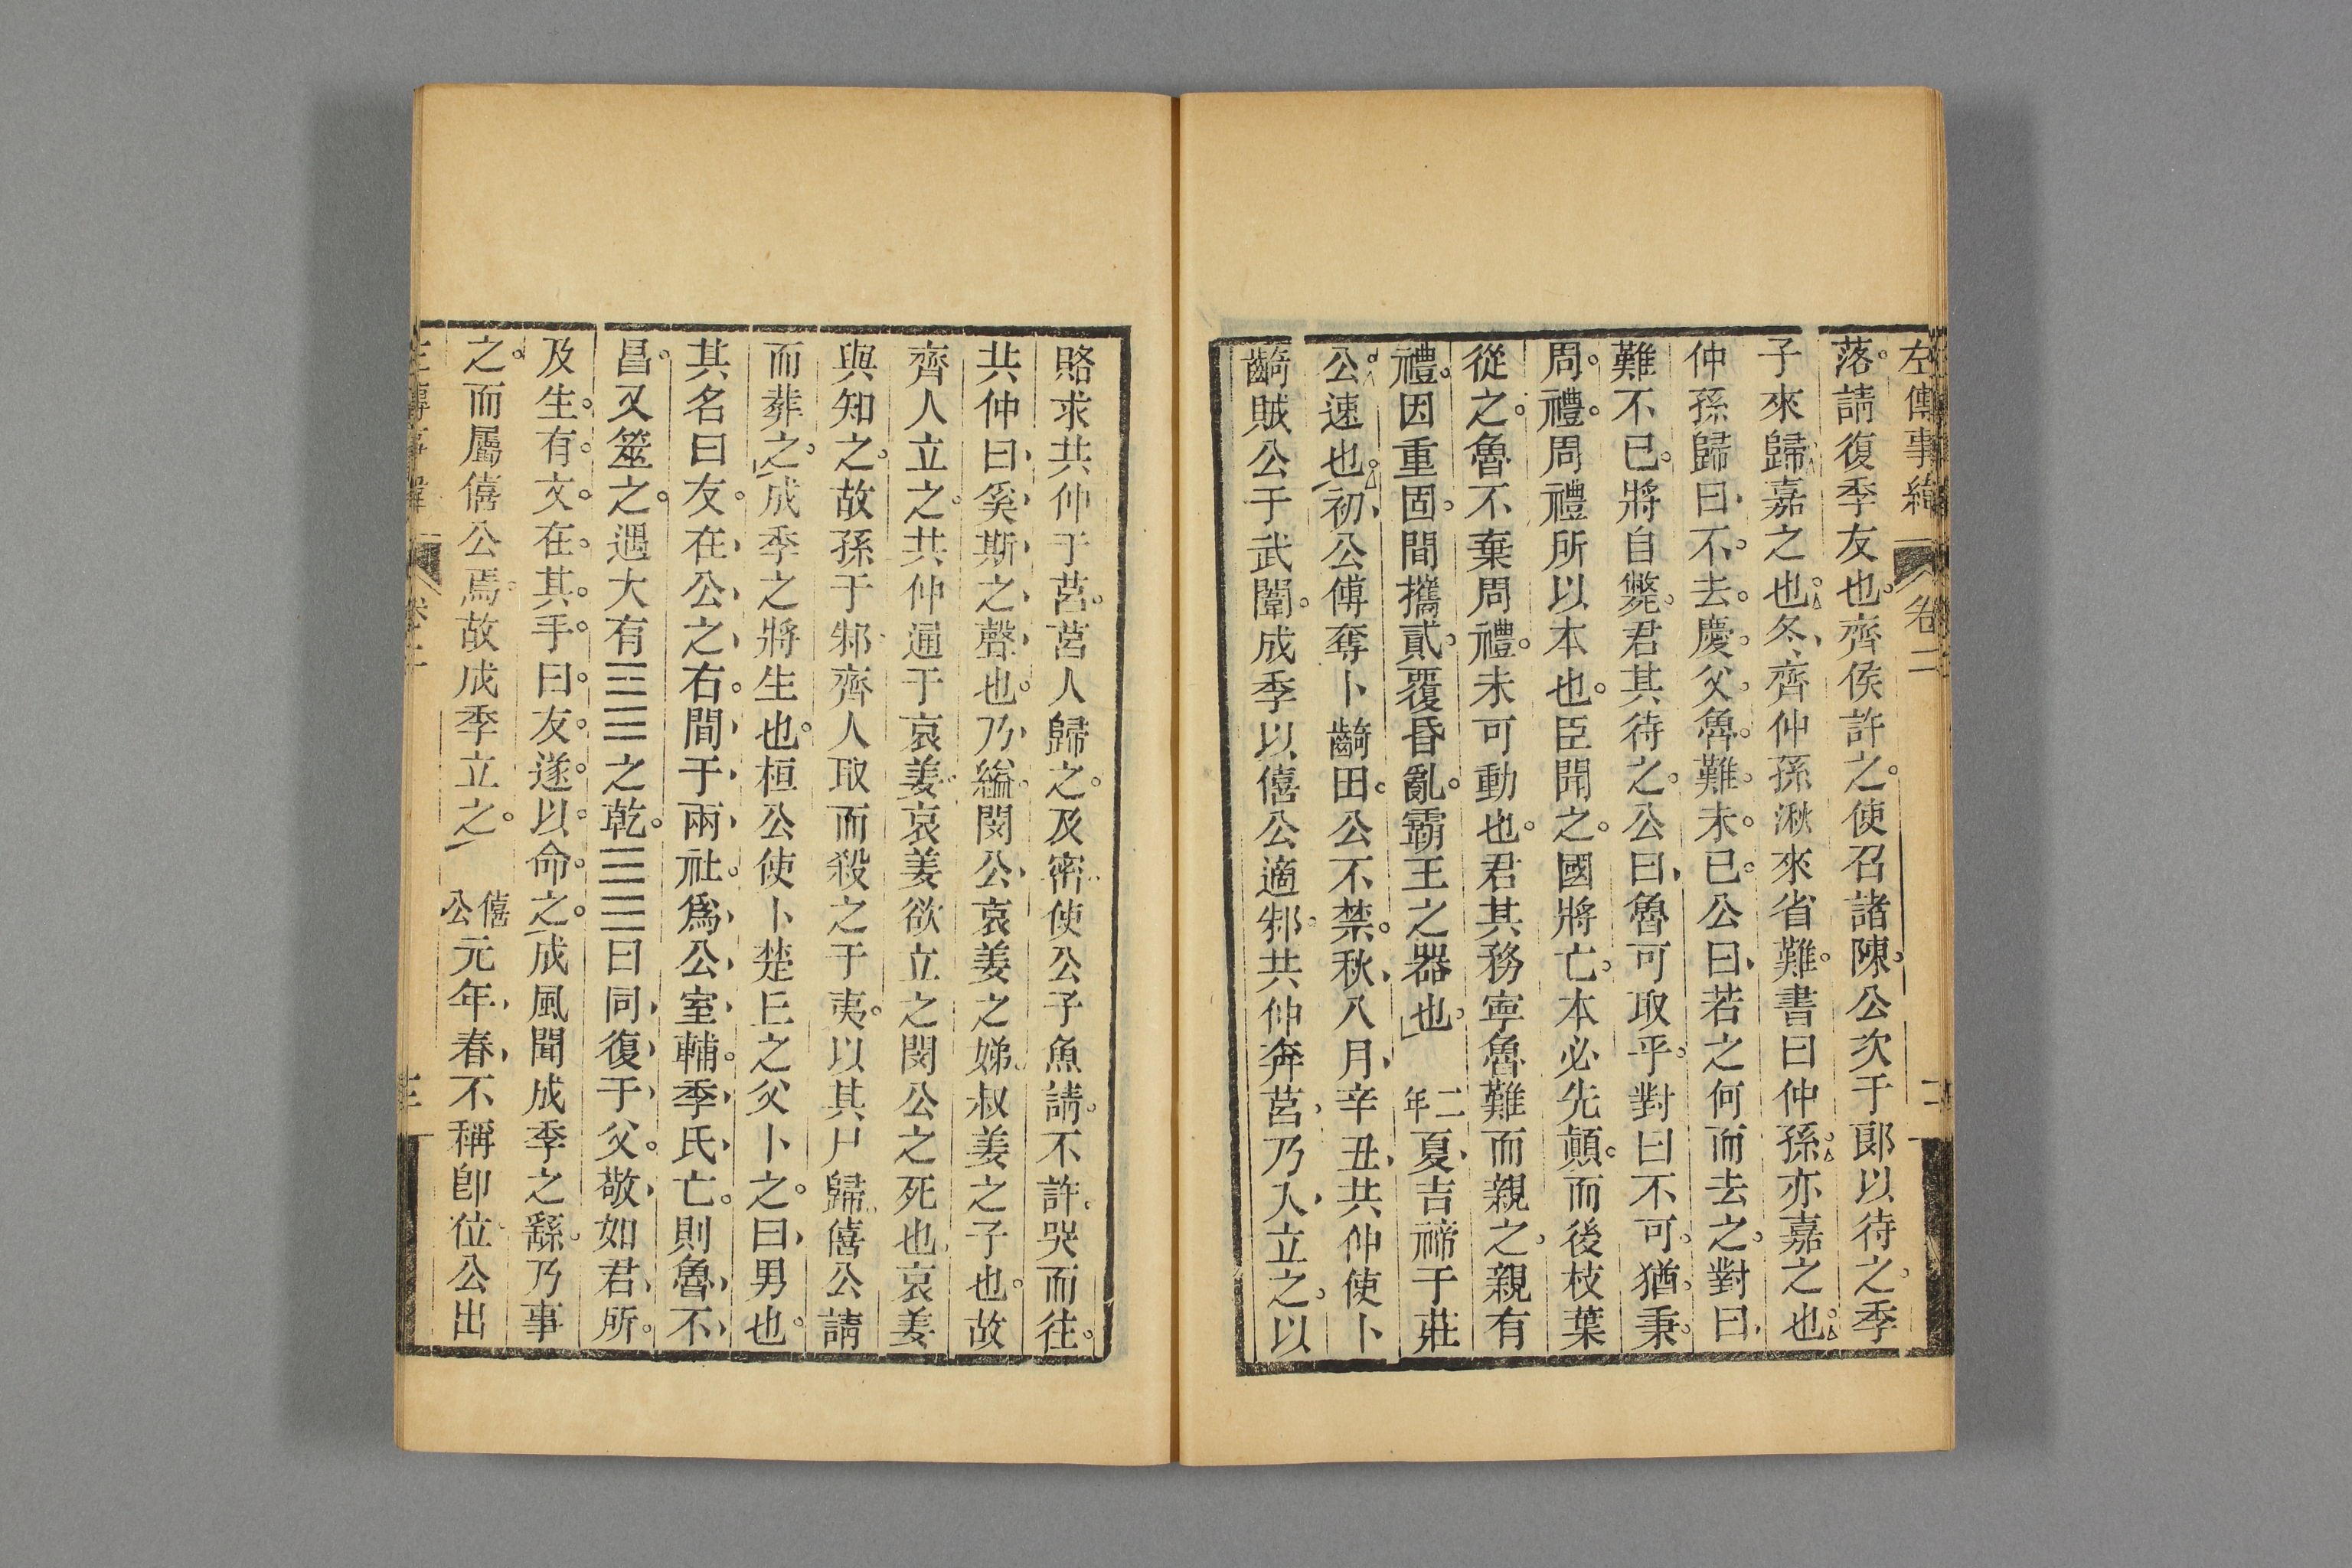 左傳事緯 卷二 二
落請復季友也齊侯許之使召諸陳公次于郎以待之季
子來歸嘉之也冬齊仲孫湫來省難書曰仲孫亦嘉之也
仲孫歸曰不去慶父魯難未已公曰若之何而去之對曰
難不已將自斃君其待之公曰魯可取乎對曰不可猶秉
周禮周禮所以本也臣聞之國將亡本必先顛而後枝葉
從之魯不棄周禮未可動也君其務寧魯難而親之親有
禮因重固間攜貳覆昏亂霸王之器也 二年夏吉禘于莊
公速也初公傅奪卜齮田公不禁秋八月辛丑共仲使卜
齮賊公于武闈成季以僖公適邾共仲奔莒乃入立之以
賂求共仲于莒莒人歸之及密使公子魚請不許哭而往
共仲曰奚斯之聲也乃縊閔公哀姜之娣叔姜之子也故
齊人立之共仲通于哀姜哀姜欲立之閔公之死也哀姜
與知之故孫于邾齊人取而殺之于夷以其尸歸僖公請
而葬之成季之將生也桓公使卜楚丘之父卜之曰男也
其名曰友在公之右間于兩社爲公室輔季氏亡則魯不
昌又筮之遇大有☲☰之乾☰☰曰同復于父敬如君所
及生有文在其手曰友遂以命之成風聞成季之繇乃事
之而屬僖公焉故成季立之 僖公元年春不稱卽位公出
左傳事緯 卷二 三